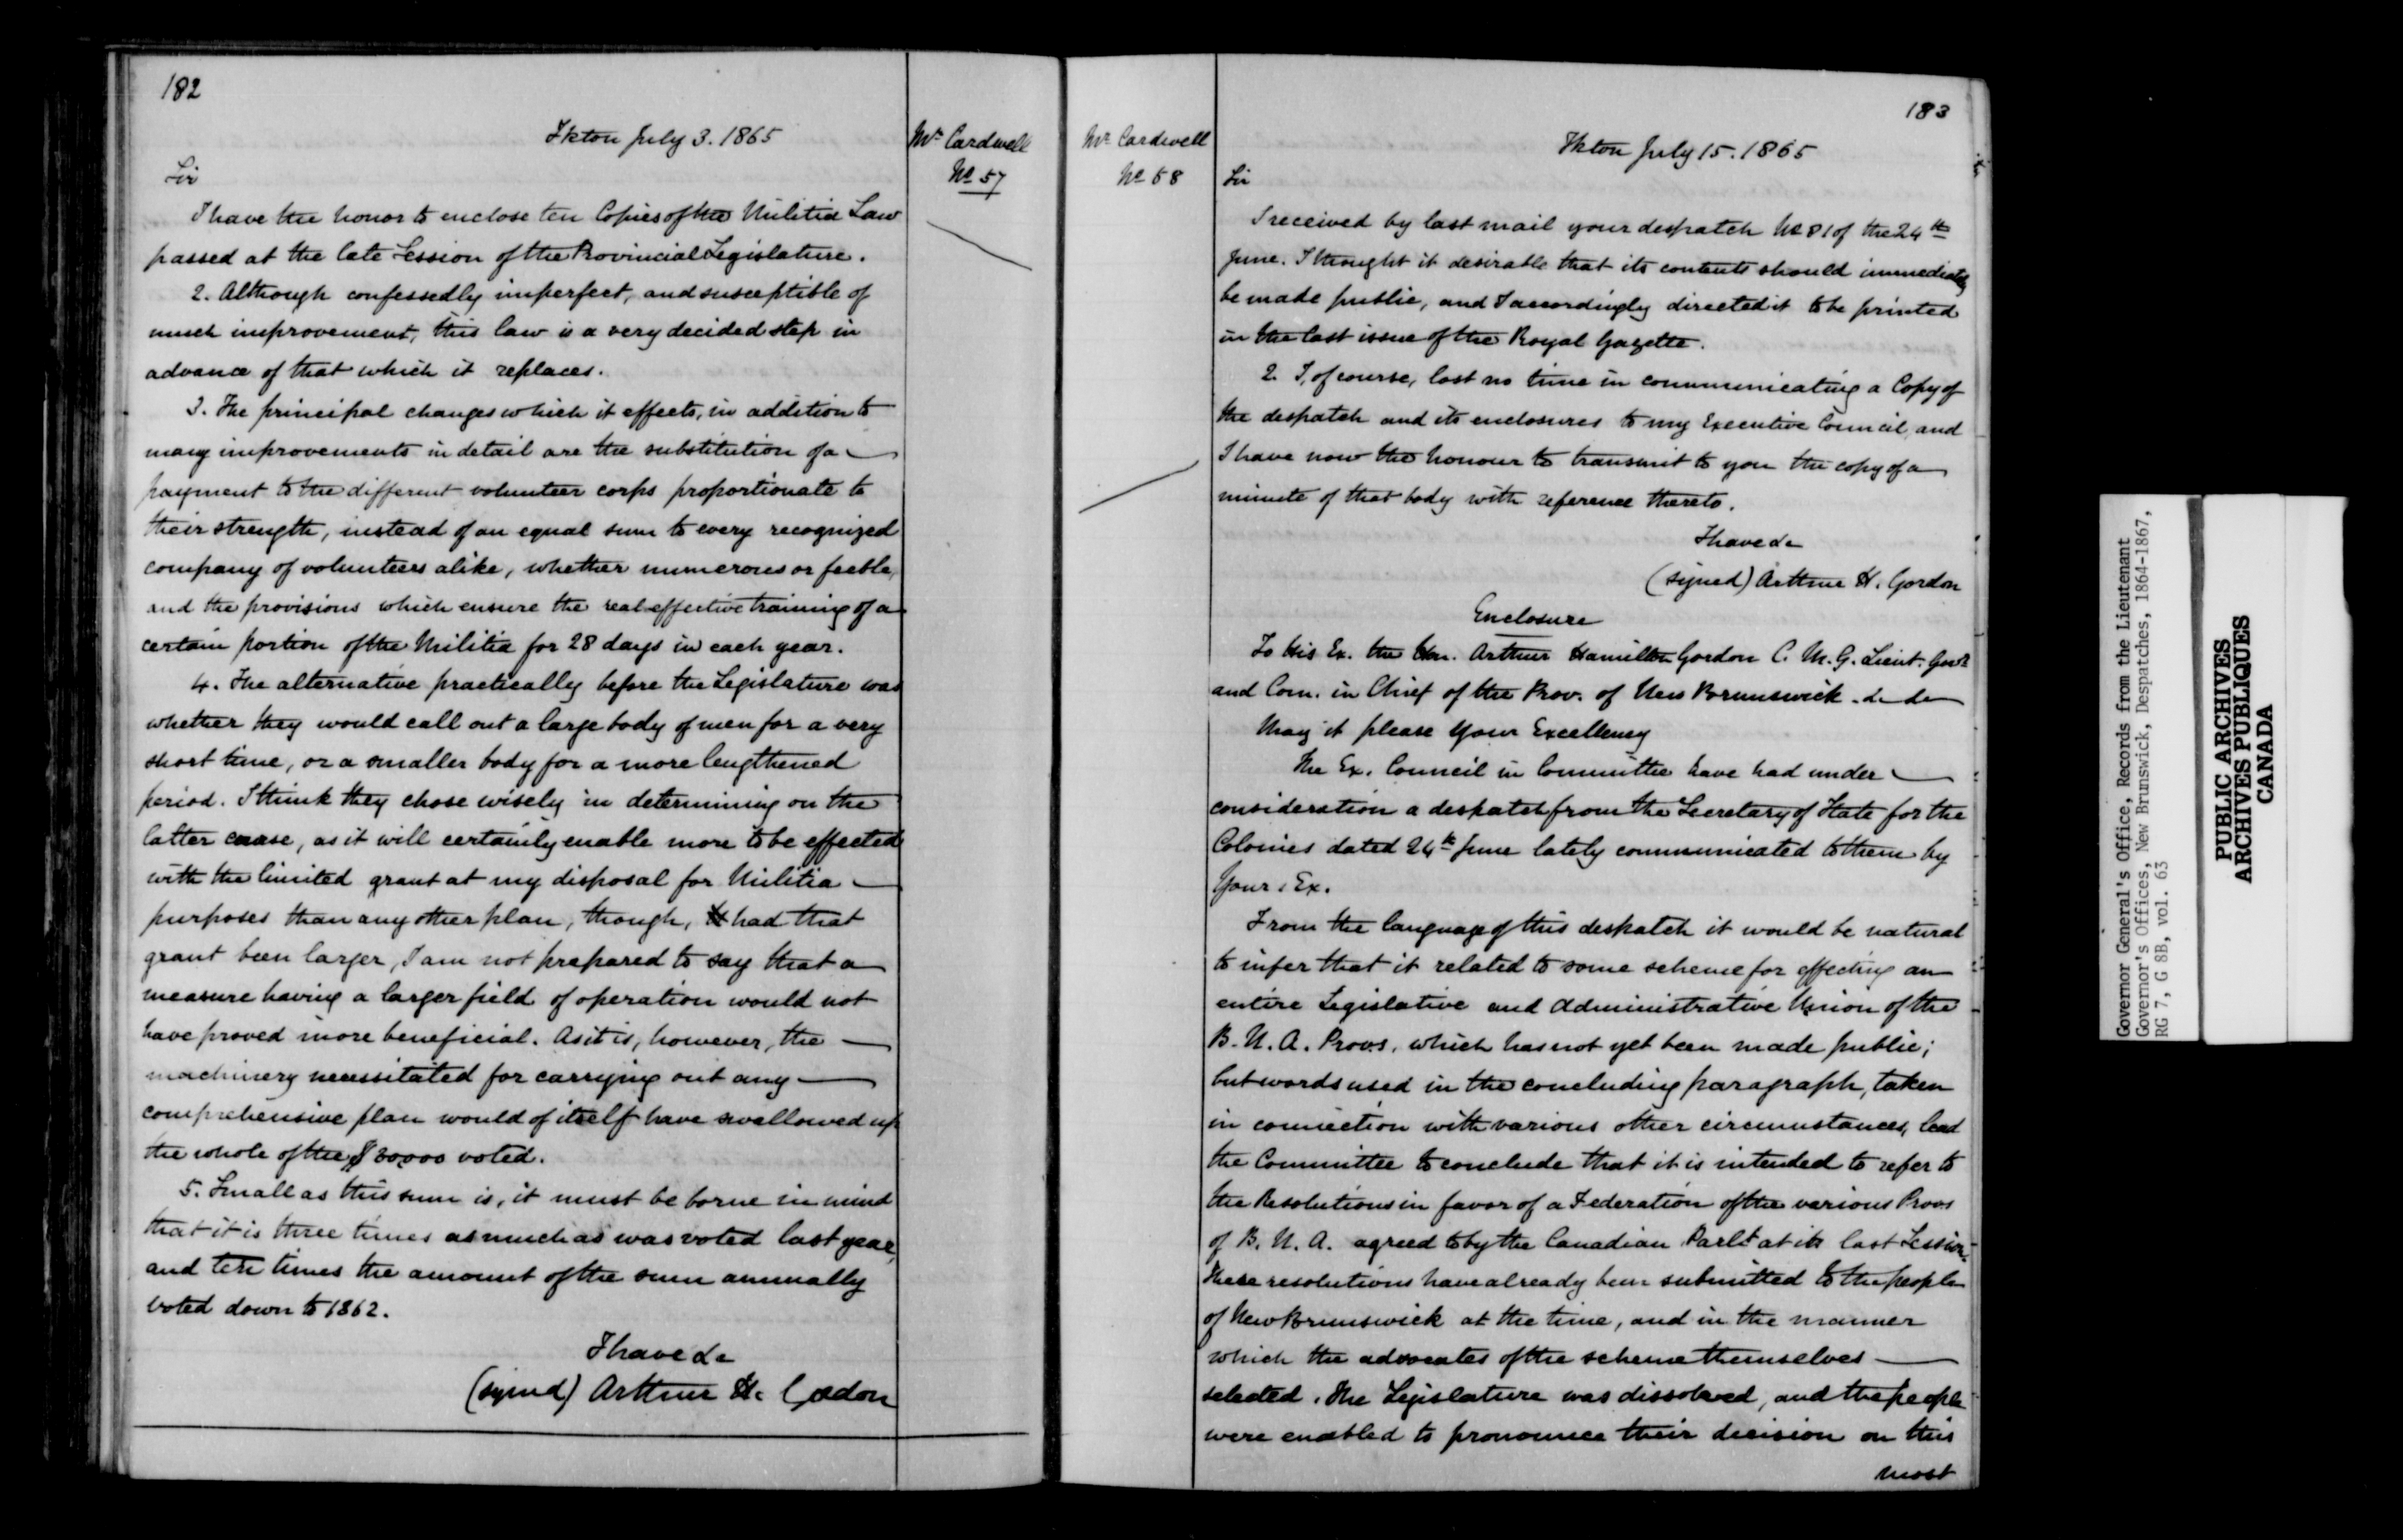 182
Fkton July 3. 1865
Mr Cardwell
No 57
Sir
I have the honor to enclose ten Copies of the Militia Law
passed at the late Session of the Provincial Legislature.
2. Although confessedly imperfect, and susceptible of
much improvement, this law is a very decided step in
advance of that which it replaces.
3. The principal changes which it effects, in addition to
many improvements in detail are the substitution of a
payment to the different volunteer corps proportionate to
their strength, instead of an equal sum to every recognized
company of volunteers alike, whether numerous or feeble,
and the provisions which ensure the real effective training of a
certain portion of the Militia for 28 days in each year.
4. The alternative practically before the Legislature was
whether they would call out a large body of men for a very
short time, or a smaller body for a more lengthened
period. I think they chose wisely in determining on the
latter course, as it will certainly enable more to be effected
with the limited grant at my disposal for Militia
purposes than any other plan, though, had that
grant been larger, I am not prepared to say that a
measure having a larger field of operation would not
have proved more beneficial. As it is, however, the
machinery necessitated for carrying out any
comprehensive plan would of itself have swallowed up
the whole of the $30,000 voted.
5. Small as this sum is, it must be borne in mind
that it is three times as much as was voted last year,
and ten times the amount of the sum annually
voted down to 1862.
I have &c
(signed) Arthur H. Gordon
183
Mr Cardwell
No 58
Fkton July 15. 1865
Sir
I received by last mail your despatch No 81 of the 24th
June. I thought it desirable that its contents should immediately
be made public, and I accordingly directed it to be printed
in the last issue of the Royal Gazette.
2. I, of course, lost no time in communicating a Copy of
the despatch and its enclosures to my Executive Council, and
I have now the honour to transmit to you the copy of a
minute of that body with reference thereto.
I have &c
(signed) Arthur H. Gordon
Enclosure
To His Ex. the Hon. Arthur Hamilton Gordon C. M. G. Lieut. Govr
and Com. in Chief of the Prov. of New Brunswick &c &c
May it please Your Excellency
The Ex. Council in Committee have had under
consideration a despatch from the Secretary of State for the
Colonies dated 24th June lately communicated to them by
Your Ex.
From the language of this despatch it would be natural
to infer that it related to some scheme for effecting an
entire Legislative and Administrative Union of the
B. N. A. Provs. which has not yet been made public;
but words used in the concluding paragraph, taken
in connection with various other circumstances, lead
the Committee to conclude that it is intended to refer to
the Resolutions in favor of a Federation of the various Provs
of B. N. A. agreed to by the Canadian Parlt at its last Session.
These resolutions have already been submitted to the people
of New Brunswick at the time, and in the manner
which the advocates of the scheme themselves
selected. The Legislature was dissolved, and the people
were enabled to pronounce their decision on this
most
Governor General's Office, Records from the Lieutenant
Governor's Offices, New Brunswick, Despatches, 1864-1867,
RG 7, G 8B, vol. 63
PUBLIC ARCHIVES
ARCHIVES PUBLIQUES
CANADA